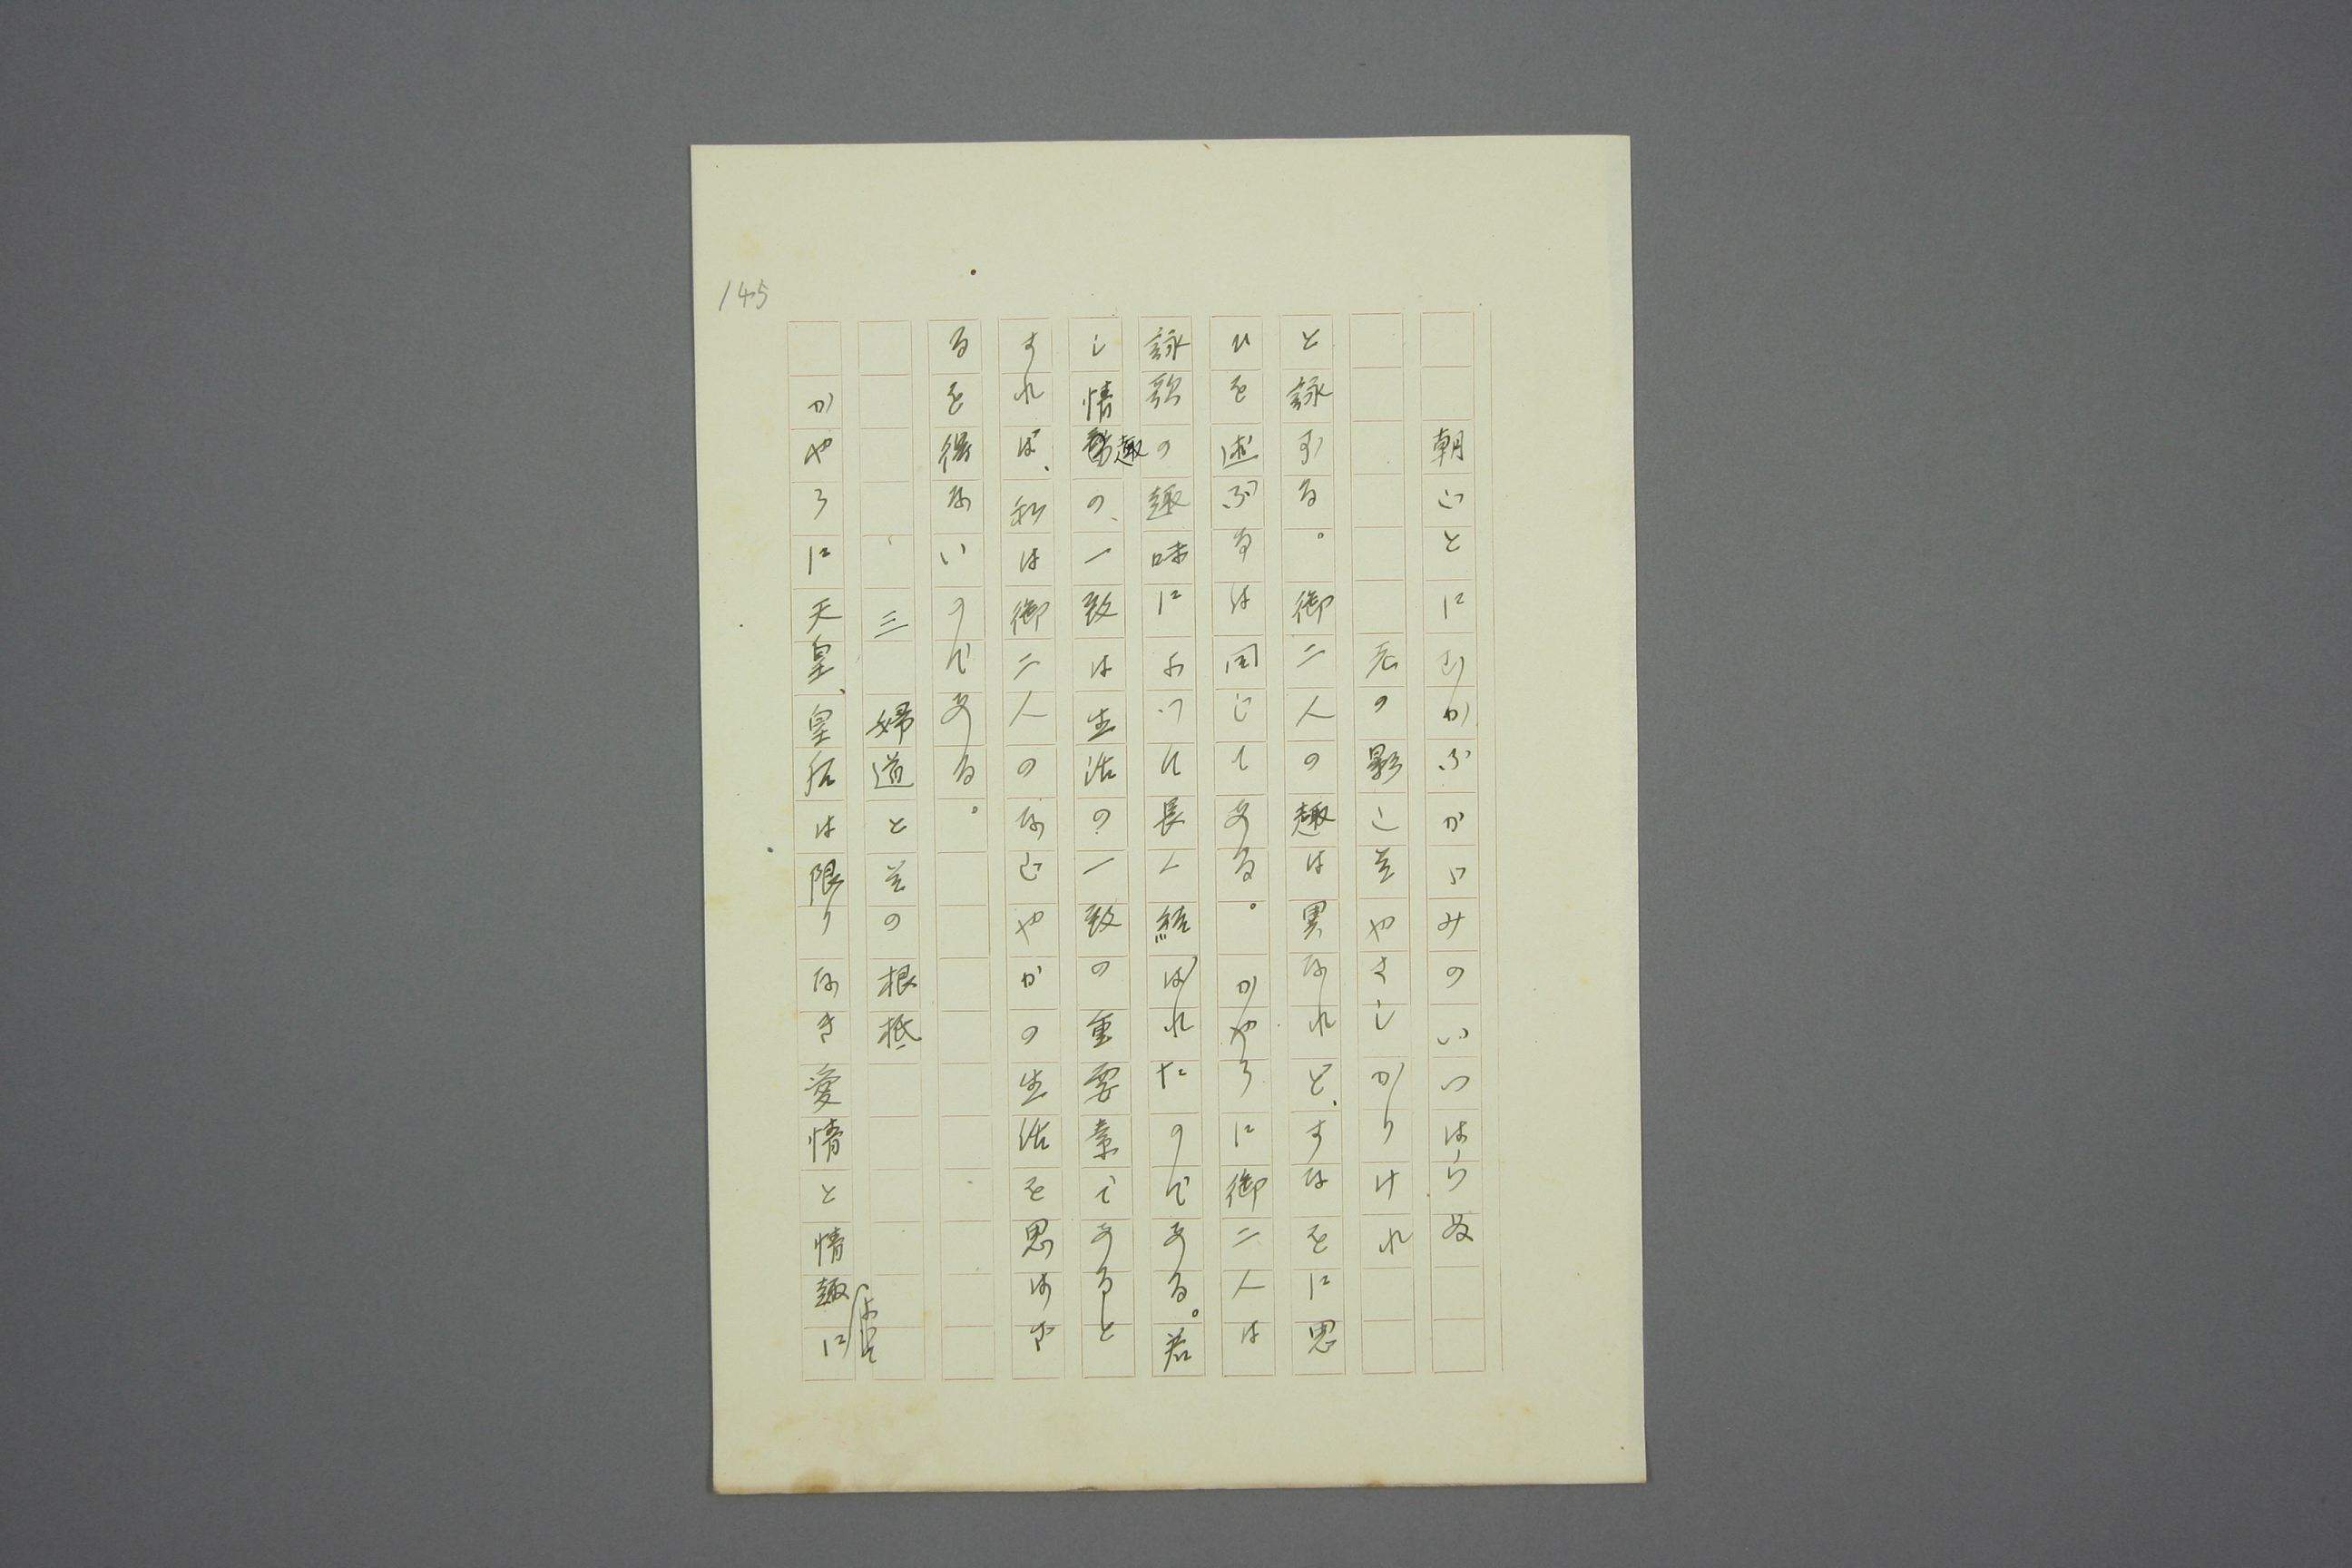 145
朝ごとにむかふかゞみのいつはらぬ
老の影こそやさしかりけれ
と詠ずる。御二人の趣は異なれど、すなをに思
ひを述ぶるは同じてある。かやうに御二人は
詠歌の趣味によつて長く結ばれたのである。若
し情趣の、一致は生活の一致の重要素であると
すれば、私は御二人のなごやかの生活を思はざ
るを得ないのである。
三 婦道と其の根柢
かやうに天皇、皇后は限りなき愛情と情趣に
よつて